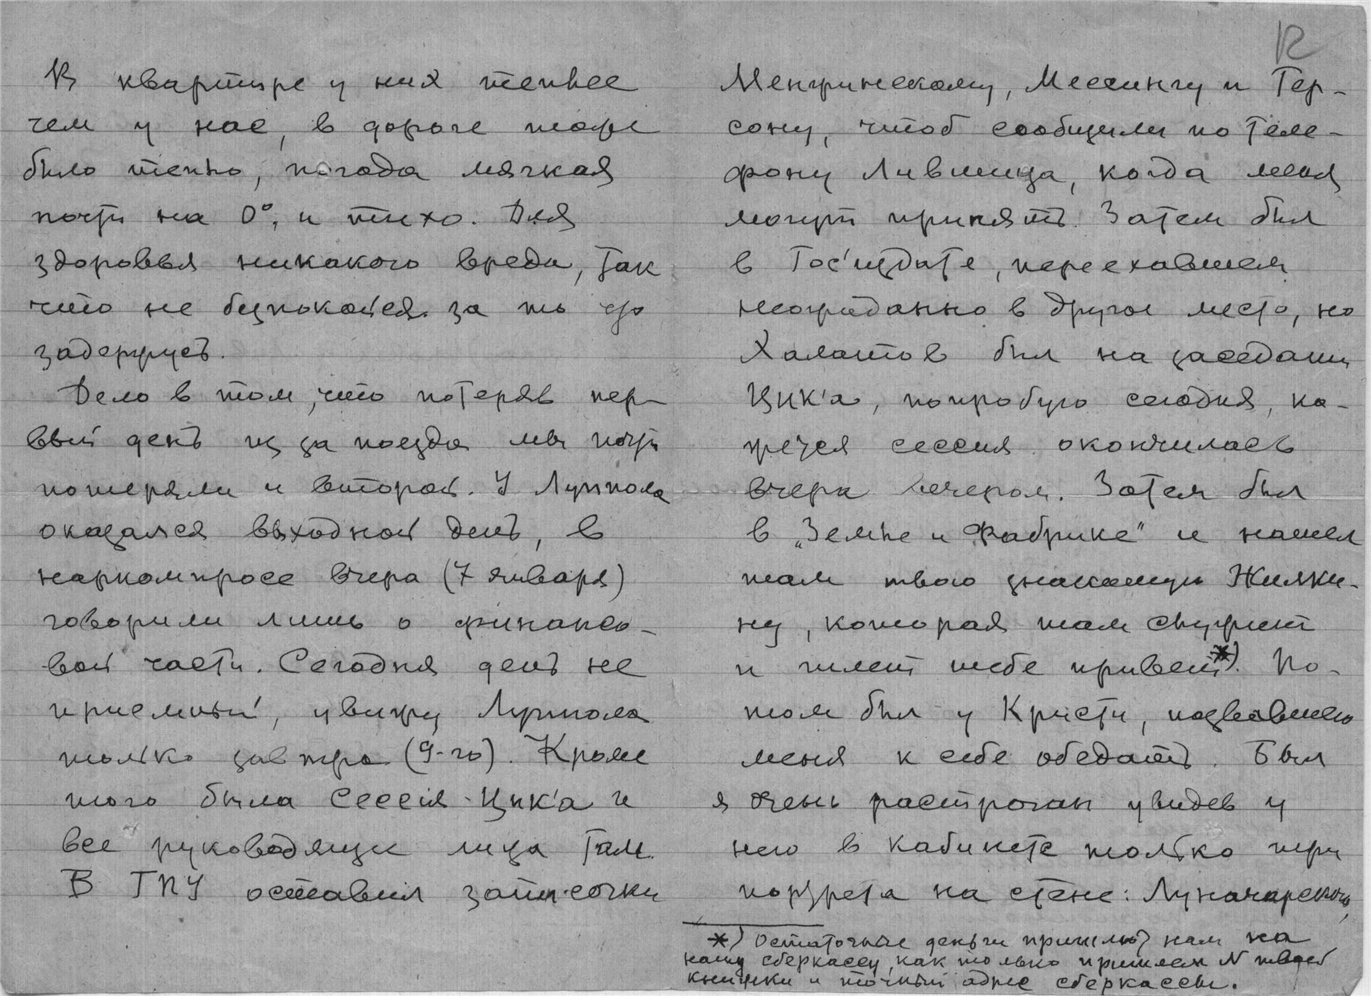 В квартире у них теплее
чем у нас, в дороге тоже
было тепло, погода мягкая
почти на 0°, и тихо. Для
здоровья никакого вреда, так
что не безпокойся за то что
задержусь.
Дело в том, что потеряв пер-
вый день из за поезда мы почти
потеряли и второй. У Луппола
оказался выходной день, в
наркомпросе вчера (7 января)
говорили лишь о финансо-
вой части. Сегодня день не
приемный, увижу Луппола
только завтра (9-го). Кроме
того была сессия Цик'а и
все руководящие лица там.
В ГПУ оставил записочки
12
Менжинскому, Мессингу и Гер-
сону, чтоб сообщили по теле-
фону Лившица, когда меня
могут принять. Затем был
в Гос'издате, переехавшем
неожиданно в другое место, но
Халатов был на заседании
Цик'а, попробую сегодня, ка-
жется сессия окончилась
вчера вечером. Затем был
в „Земле и Фабрике" и нашел
там твою знакомую Жилки-
ну, которая там служит
и шлет тебе привет *). По-
том был у Кристи, позвавшего
меня к себе обедать. Был
я очень растроган увидев у
него в кабинете только три
портрета на стене: Луначарского,
*) Остаточные деньги пришлют нам на
нашу сберкассу, как только пришлем N твоей
книжки и точный адрес сберкассы.